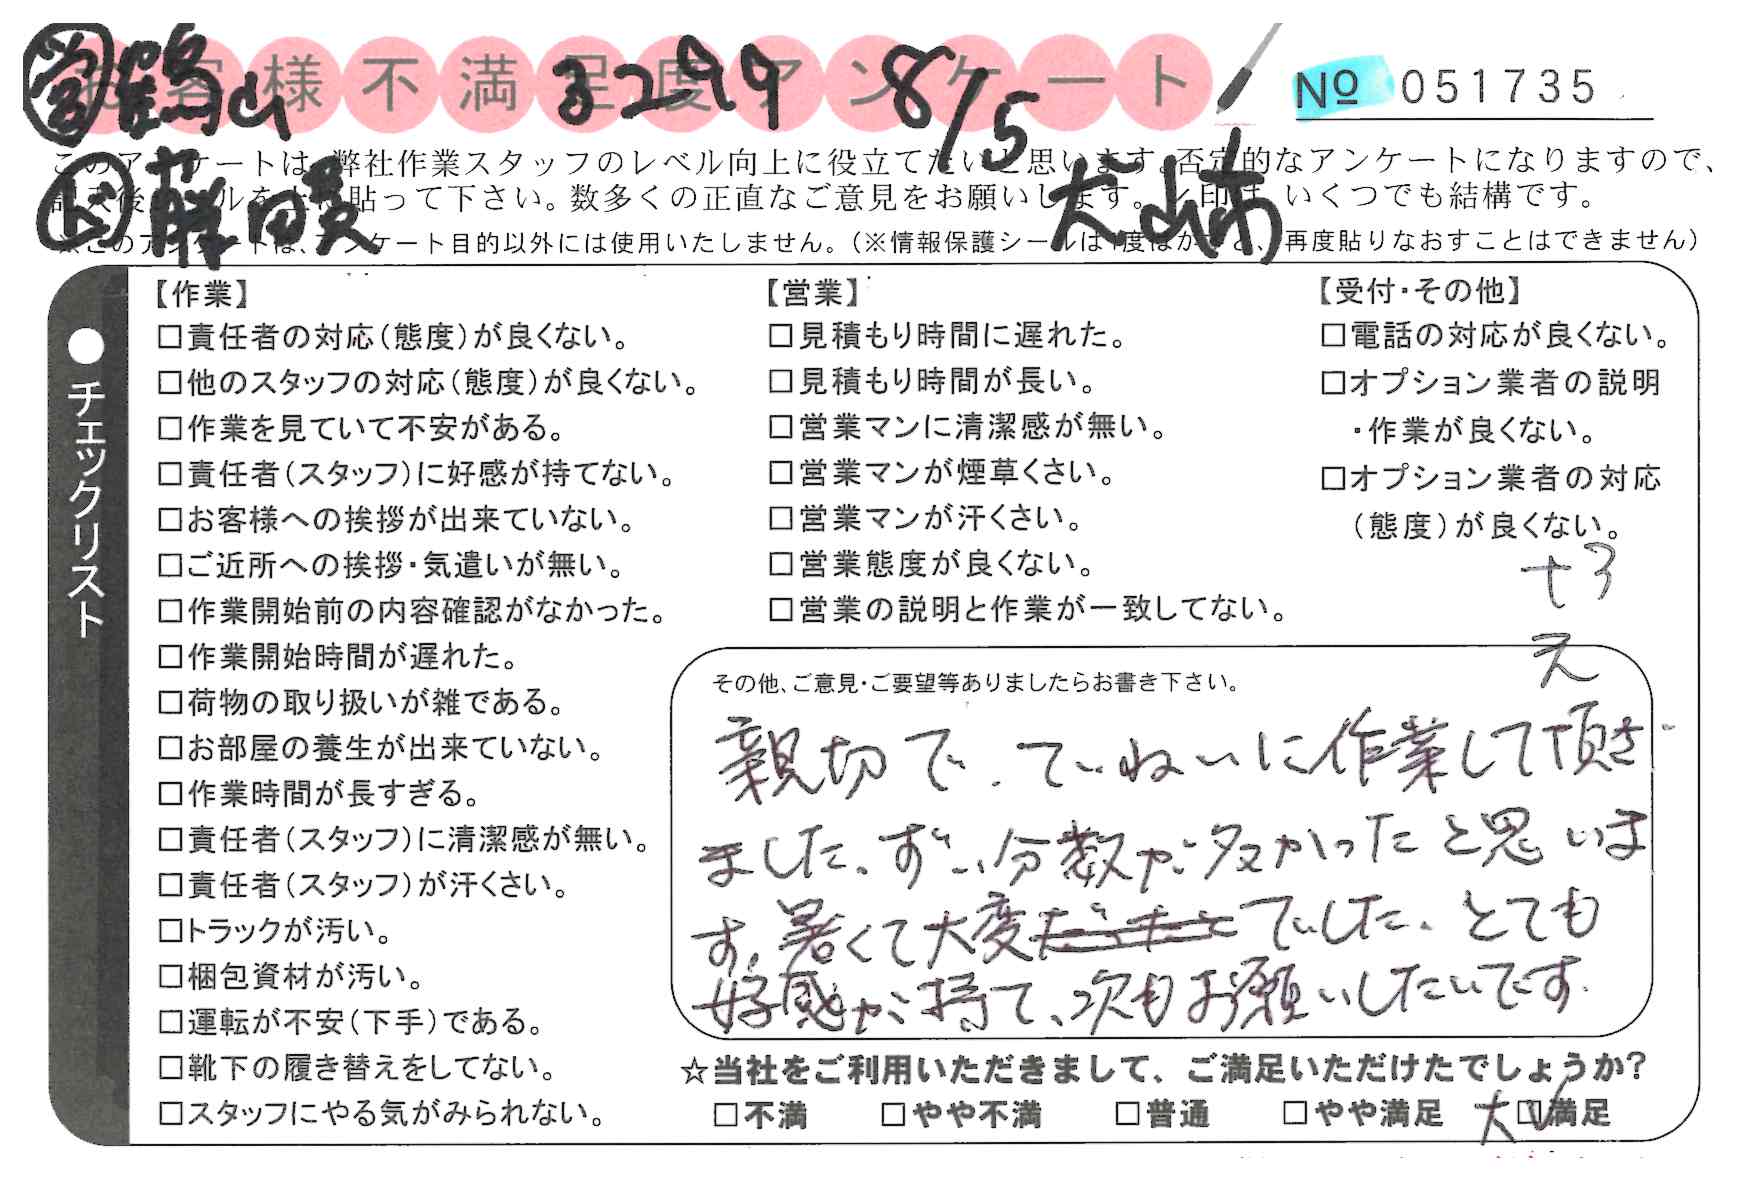 お客様不満足度アンケート
営 鶴山 3299 8/5
No 051735
このアンケートは、弊社作業スタッフのレベル向上に役立てたいと思います。否定的なアンケートになりますので、
記入後シールを上に貼って下さい。数多くの正直なご意見をお願いします。レ印は、いくつでも結構です。
※このアンケートは、アンケート目的以外には使用いたしません。(※情報保護シールは1度はがすと、再度貼りなおすことはできません)
犬山市
●チェックリスト
【作業】
□責任者の対応(態度)が良くない。
□他のスタッフの対応(態度)が良くない。
□作業を見ていて不安がある。
□責任者(スタッフ)に好感が持てない。
□お客様への挨拶が出来ていない。
□ご近所への挨拶・気遣いが無い。
□作業開始前の内容確認がなかった。
□作業開始時間が遅れた。
□荷物の取り扱いが雑である。
□お部屋の養生が出来ていない。
□作業時間が長すぎる。
□責任者(スタッフ)に清潔感が無い。
□責任者(スタッフ)が汗くさい。
□トラックが汚い。
□梱包資材が汚い。
□運転が不安(下手)である。
□靴下の履き替えをしてない。
□スタッフにやる気がみられない。
【営業】
□見積もり時間に遅れた。
□見積もり時間が長い。
□営業マンに清潔感が無い。
□営業マンが煙草くさい。
□営業マンが汗くさい。
□営業態度が良くない。
□営業の説明と作業が一致してない。
【受付・その他】
□電話の対応が良くない。
□オプション業者の説明
・作業が良くない。
□オプション業者の対応
(態度)が良くない。
+3
え
その他、ご意見・ご要望等ありましたらお書き下さい。
親切で、ていねいに作業して頂き
ました、ずい分数が多かったと思いま
す。暑くて大変でした、とても
好感が持て、次もお願いしたいです.
☆当社をご利用いただきまして、ご満足いただけたでしょうか?
□不満 □やや不満 □普通 □やや満足 大☑満足